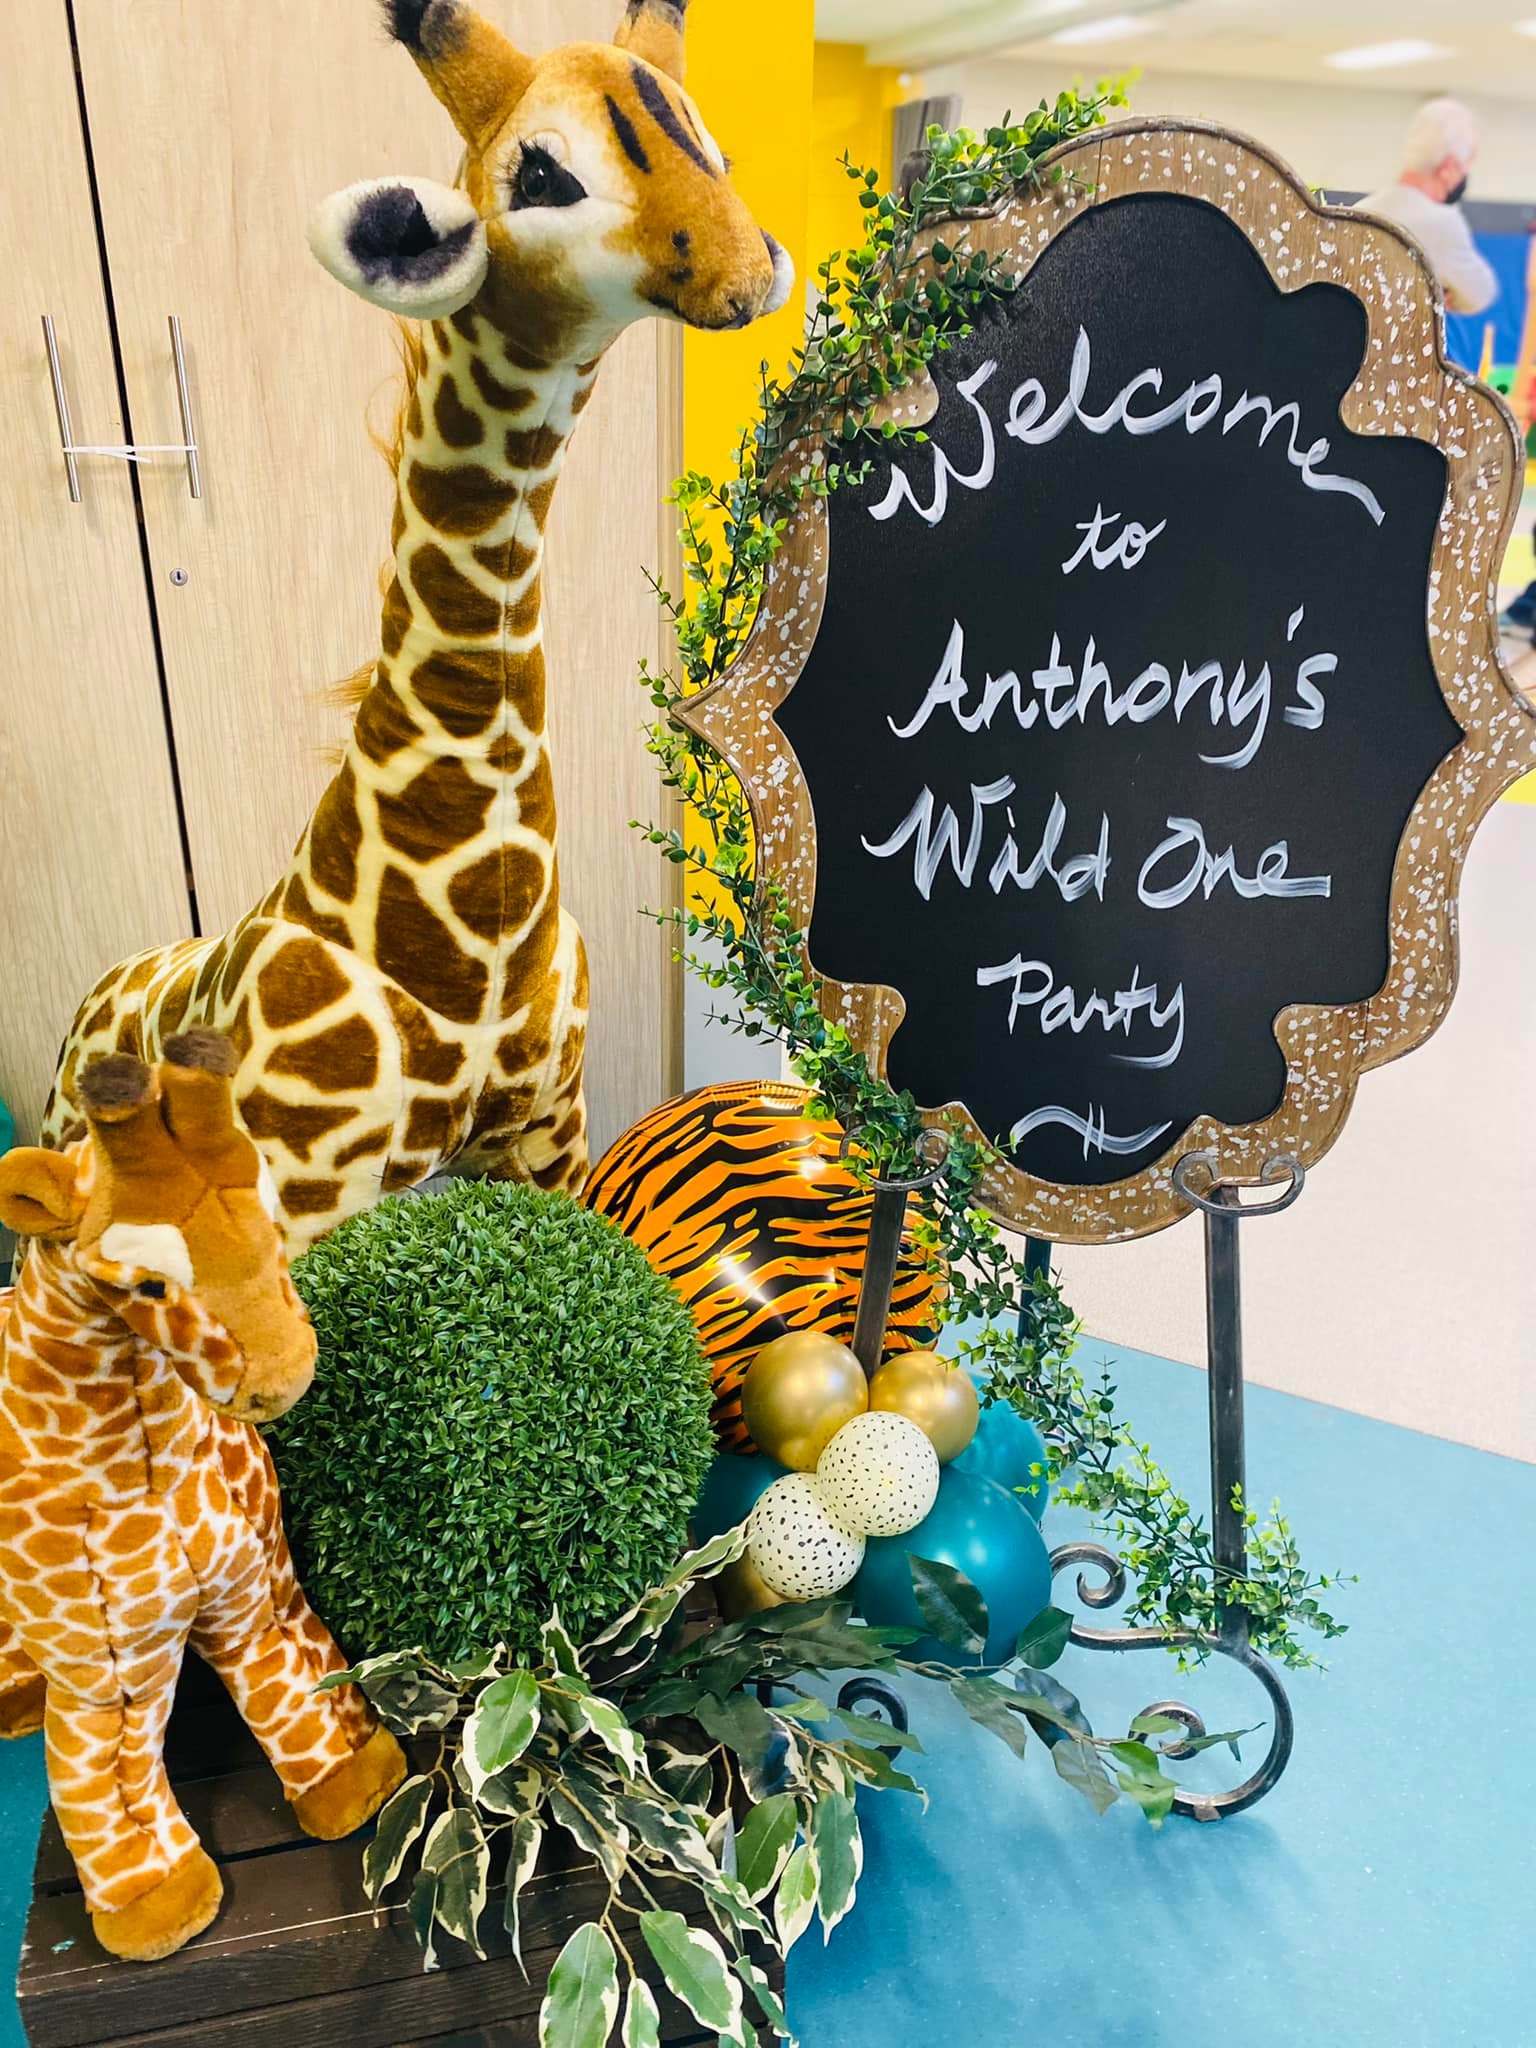 Welcome
to
Anthony's
Wild One
Party